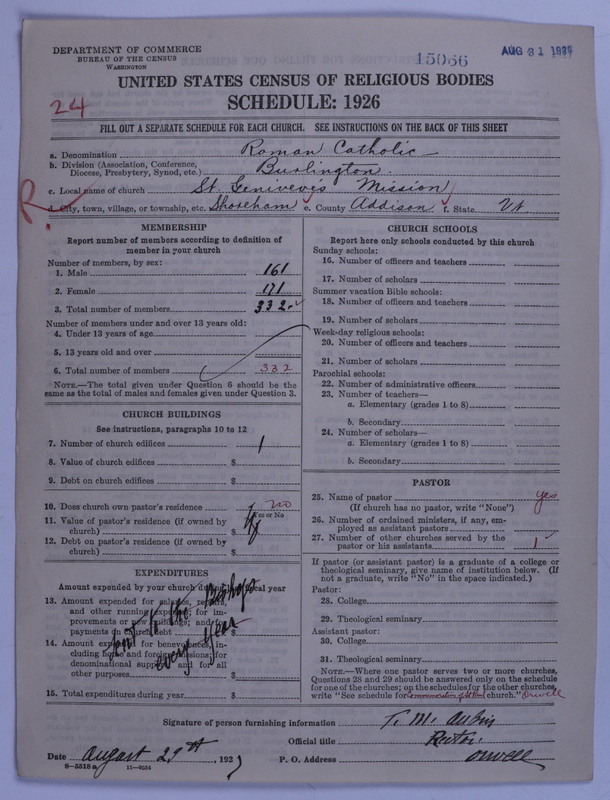 DEPARTMENT OF COMMERCE
BUREAU OF THE CENSUS
WASHINGTON
15066
AUG 31 1927
UNITED STATES CENSUS OF RELIGIOUS BODIES
SCHEDULE: 1926
24
FILL OUT A SEPARATE SCHEDULE FOR EACH CHURCH. SEE INSTRUCTIONS ON THE BACK OF THIS SHEET
a. Denomination Roman Catholic
b. Division (Association, Conference, Diocese, Presbytery, Synod, etc.) Burlington.
c. Local name of church St. Geniveve's Mission
R.
d. City, town, village, or township, etc. Shoreham e. County Addison f. State Vt.
MEMBERSHIP
Report number of members according to definition of
member in your church
Number of members, by sex:
1. Male 161
2. Female 171
3. Total number of members 332
Number of members under and over 13 years old:
4. Under 13 years of age
5. 13 years old and over
6. Total number of members 332
NOTE.—The total given under Question 6 should be the
same as the total of males and females given under Question 3.
CHURCH BUILDINGS
See instructions, paragraphs 10 to 12
7. Number of church edifices 1
8. Value of church edifices $
9. Debt on church edifices $
10. Does church own pastor's residence? no
Yes or No
11. Value of pastor's residence (if owned by
church) $
12. Debt on pastor's residence (if owned by
church) $
EXPENDITURES
Amount expended by your church during fiscal year
13. Amount expended for salaries, repairs,
and other running expenses; for im-
provements or new buildings; and for
payments on church debt $
14. Amount expended for benevolences, in-
cluding home and foreign missions; for
denominational support; and for all
other purposes $
sent to the Bishops
every year
15. Total expenditures during year $
CHURCH SCHOOLS
Report here only schools conducted by this church
Sunday schools:
16. Number of officers and teachers
17. Number of scholars
Summer vacation Bible schools:
18. Number of officers and teachers
19. Number of scholars
Week-day religious schools:
20. Number of officers and teachers
21. Number of scholars
Parochial schools:
22. Number of administrative officers
23. Number of teachers—
a. Elementary (grades 1 to 8)
b. Secondary
24. Number of scholars—
a. Elementary (grades 1 to 8)
b. Secondary
PASTOR
25. Name of pastor yes
(If church has no pastor, write "None")
26. Number of ordained ministers, if any, em-
ployed as assistant pastors
27. Number of other churches served by the
pastor or his assistants 1
If pastor (or assistant pastor) is a graduate of a college or
theological seminary, give name of institution below. (If
not a graduate, write "No" in the space indicated.)
Pastor:
28. College
29. Theological seminary
Assistant pastor:
30. College
31. Theological seminary
NOTE.—Where one pastor serves two or more churches,
Questions 28 and 29 should be answered only on the schedule
for one of the churches; on the schedules for the other churches,
write "See schedule for church." Orwell
Signature of person furnishing information T. M. Aubin
Official title Rector
Date August 29th, 1927
P. O. Address Orwell
8-5518a 11-9034